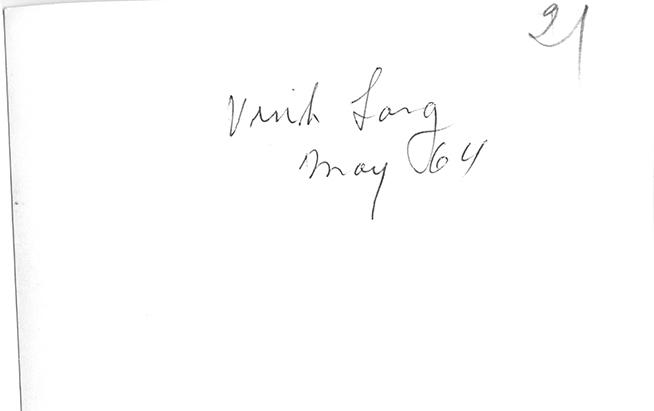 21
Vinh Long
May 64